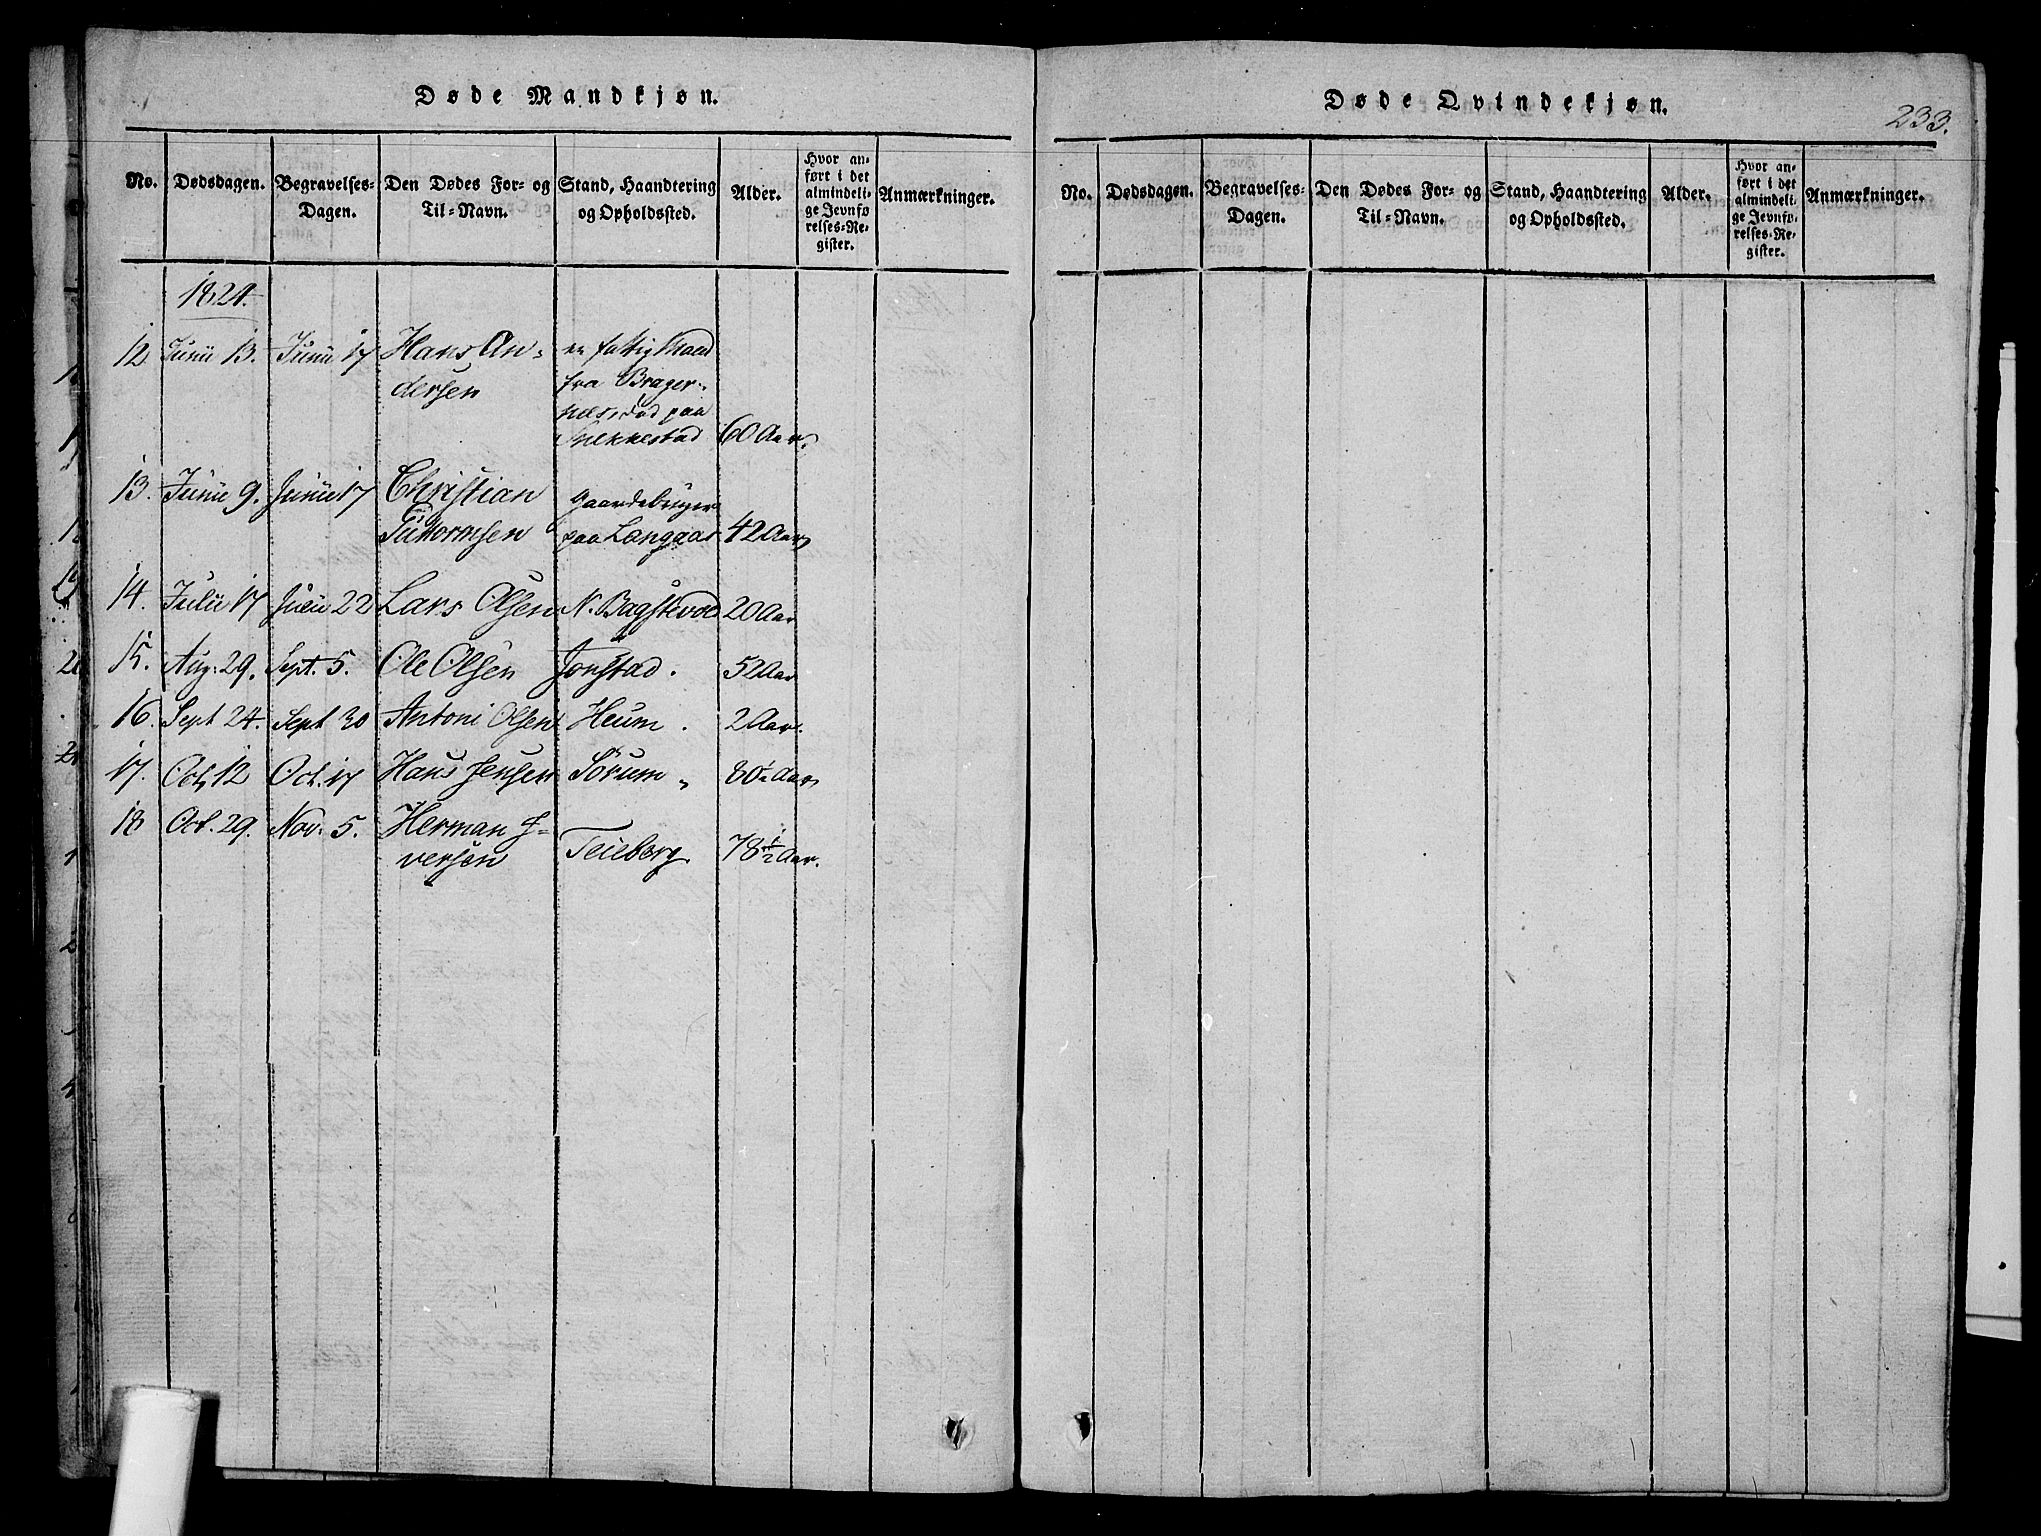 Døde Mandkjøn.
No. Dødsdagen. Begravelses-Dagen. Den Dødes For- og Til-Navn. Stand, Haandtering og Opholdssted. Alder. Hvor anført i det almindelige Jevnførelses-Register. Anmærkninger.
1824.
12 Junii 13. Junii 17 Hans An-
dersen
en fattig Mand
fra Brager-
næs, død paa
60 Aar.
13. Junii 9. Junii 17 Christian
Guttormsen
Gaardebruger
paa Langaas 42 Aar
14. Julii 17 Julii 22 Lars Olsen N. Bagstevold 20 Aar
15. Aug. 29. Sept. 5. Ole Olsen Jonstad. 52 Aar
16. Sept 24. Sept 30 Antoni Olsen Heum. 2 Aar.
17. Oct. 12 Oct. 17 Hans Jensen Sørum „ 80½ Aar
18 Oct. 29. Nov. 5. Herman I-
versen Teieberg 78½ Aar.
Døde Qvindekjøn.
233.
No. Dødsdagen. Begravelses-Dagen. Den Dødes For- og Til-Navn. Stand, Haandtering og Opholdssted. Alder. Hvor anført i det almindelige Jevnførelses-Register. Anmærkninger.